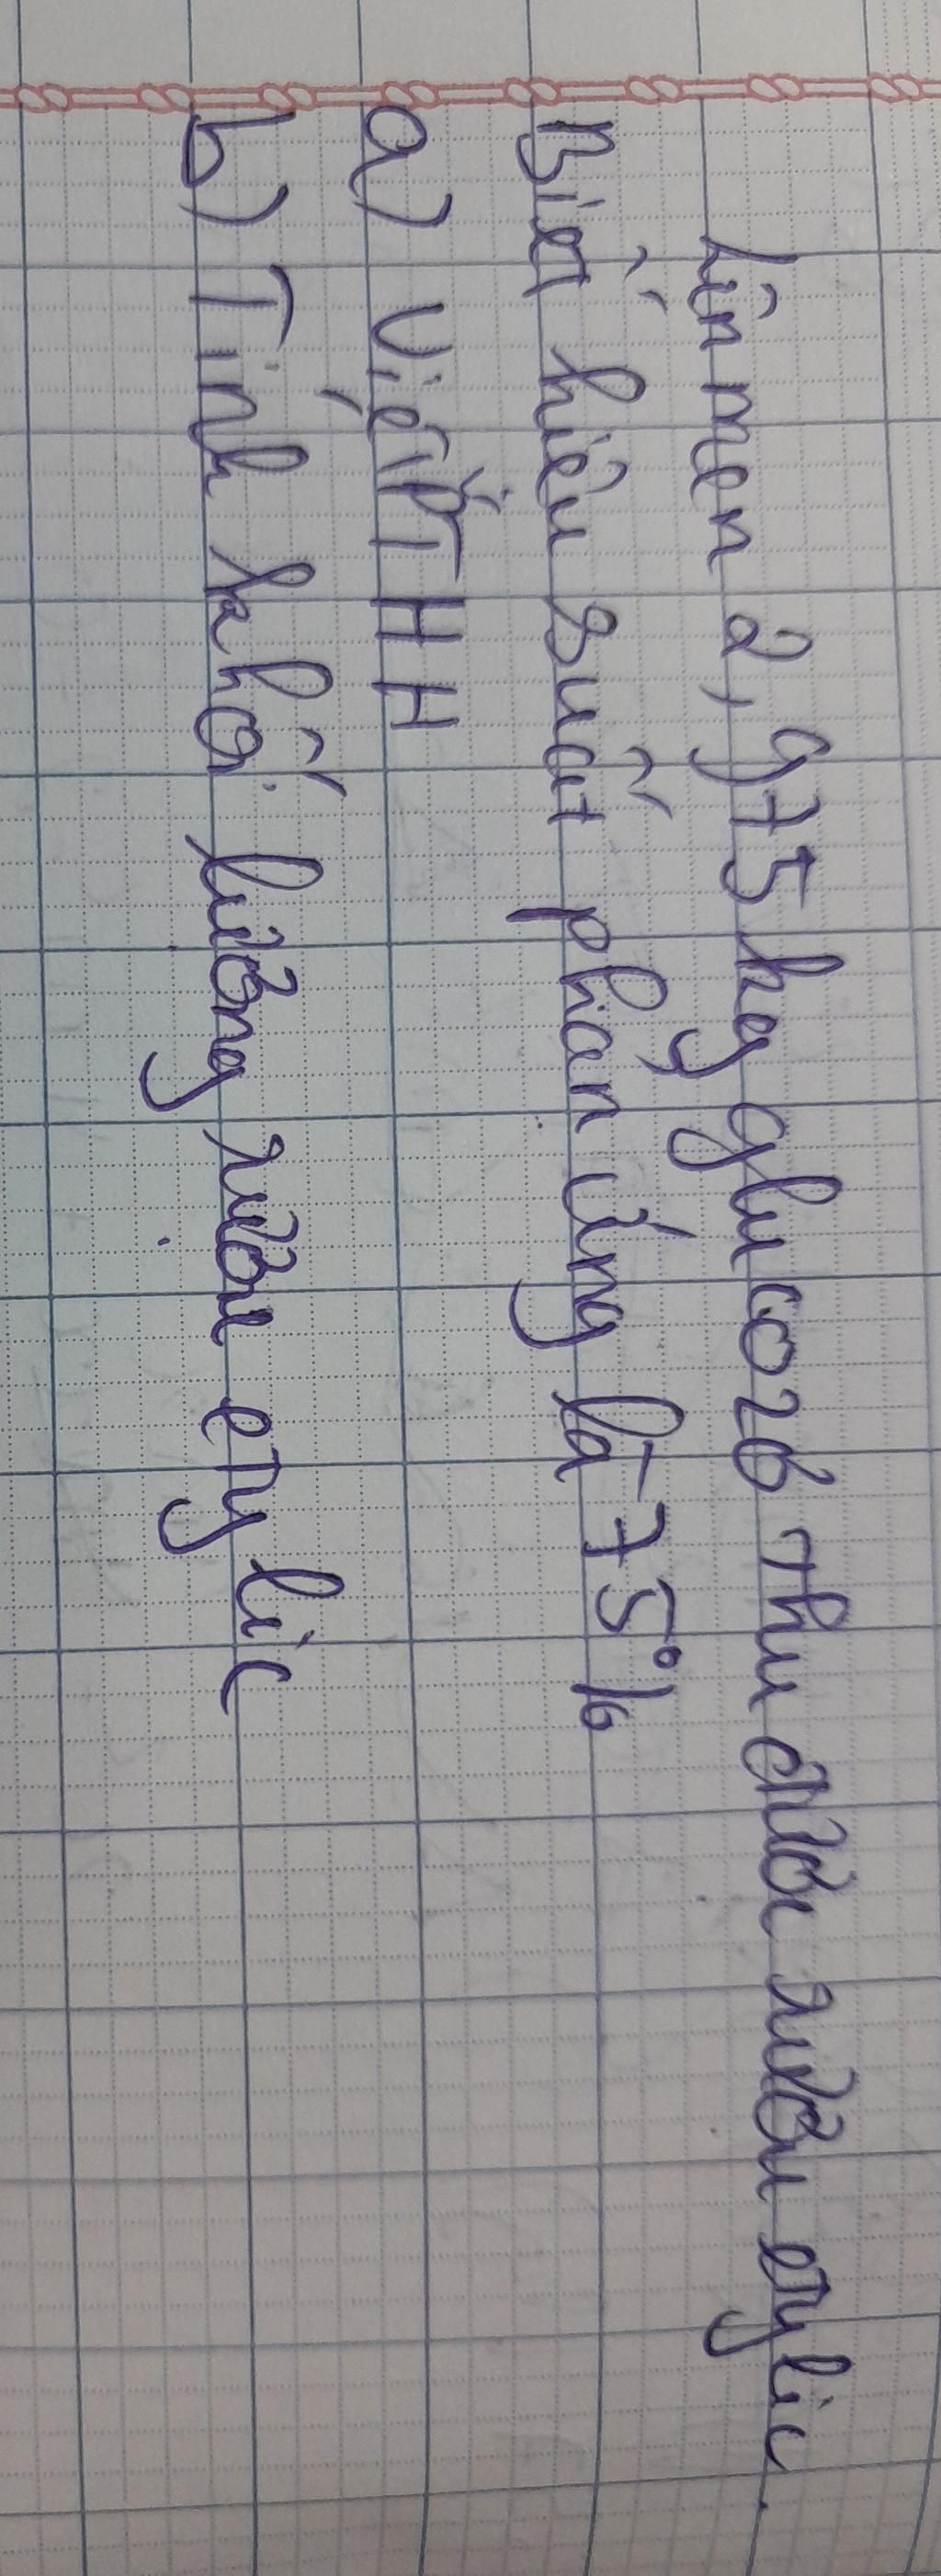 Lên men 2,975 kg glucozơ thu được rượu etylic.
Biết hiệu suất phản ứng là 75%
a) Viết PTHH
b) Tính khối lượng rượu etylic